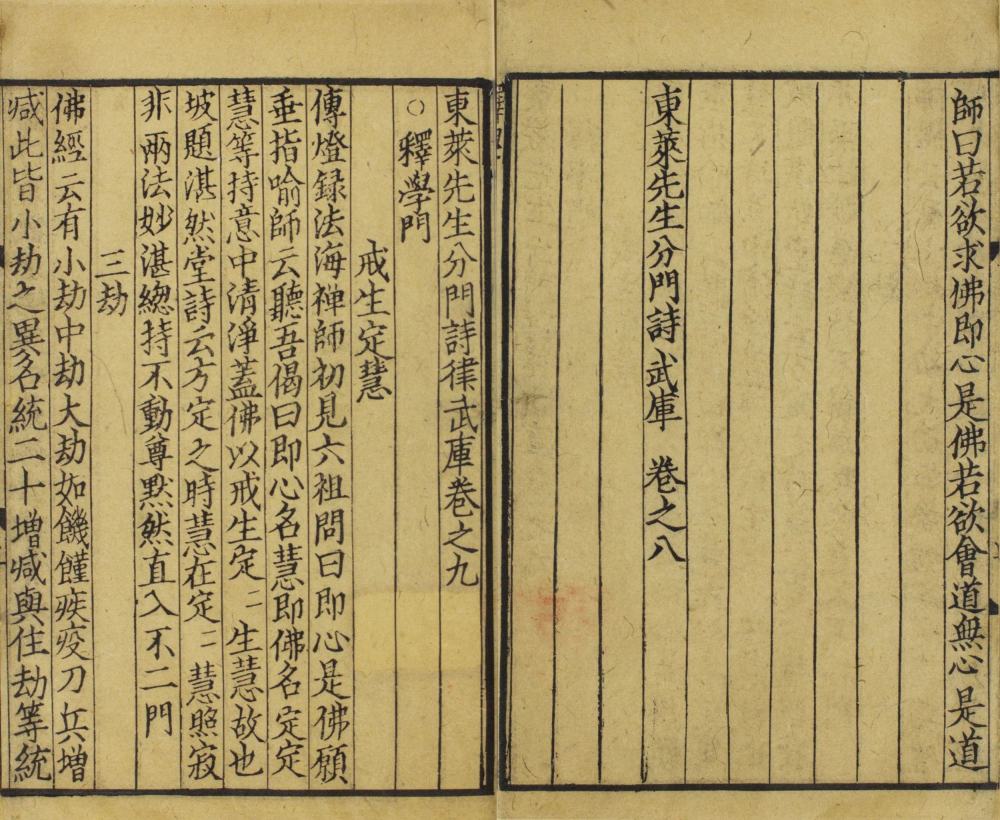 師曰若欲求佛即心是佛若欲會道無心是道
東萊先生分門詩武庫　卷之八
東萊先生分門詩律武庫卷之九
○釋學門
戒生定慧
傳燈録法海禅師初見六祖問曰即心是佛願
垂指喻師云聽吾偈曰即心名慧即佛名定定
慧等持意中清淨蓋佛以戒生定二生慧故也
坡題湛然堂詩云方定之時慧在定二慧照寂
非兩法妙湛緫持不動尊黙然直入不二門
三劫
佛經云有小劫中劫大劫如饑饉疾疫刀兵增
減此皆小劫之異名統二十增減與住劫等統